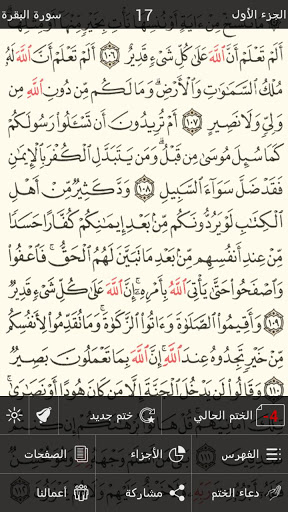 الجزء الأول 17 سورة البقرة
أَلَمْ تَعْلَمْ أَنَّ ٱللَّهَ عَلَىٰ كُلِّ شَىْءٍ قَدِيرٌ ١٠٦ أَلَمْ تَعْلَمْ أَنَّ ٱللَّهَ لَهُۥ
مُلْكُ ٱلسَّمَٰوَٰتِ وَٱلْأَرْضِ وَمَا لَكُم مِّن دُونِ ٱللَّهِ
مِن وَلِىٍّ وَلَا نَصِيرٍ ١٠٧ أَمْ تُرِيدُونَ أَن تَسْـَٔلُوا۟ رَسُولَكُمْ
كَمَا سُئِلَ مُوسَىٰ مِن قَبْلُ وَمَن يَتَبَدَّلِ ٱلْكُفْرَ بِٱلْإِيمَٰنِ
فَقَدْ ضَلَّ سَوَآءَ ٱلسَّبِيلِ ١٠٨ وَدَّ كَثِيرٌ مِّنْ أَهْلِ
ٱلْكِتَٰبِ لَوْ يَرُدُّونَكُم مِّنۢ بَعْدِ إِيمَٰنِكُمْ كُفَّارًا حَسَدًا
مِّنْ عِندِ أَنفُسِهِم مِّنۢ بَعْدِ مَا تَبَيَّنَ لَهُمُ ٱلْحَقُّ فَٱعْفُوا۟
وَٱصْفَحُوا۟ حَتَّىٰ يَأْتِىَ ٱللَّهُ بِأَمْرِهِۦٓ إِنَّ ٱللَّهَ عَلَىٰ كُلِّ شَىْءٍ قَدِيرٌ
١٠٩ وَأَقِيمُوا۟ ٱلصَّلَوٰةَ وَءَاتُوا۟ ٱلزَّكَوٰةَ وَمَا تُقَدِّمُوا۟ لِأَنفُسِكُم
مِّنْ خَيْرٍ تَجِدُوهُ عِندَ ٱللَّهِ إِنَّ ٱللَّهَ بِمَا تَعْمَلُونَ بَصِيرٌ
١١٠ وَقَالُوا۟ لَن يَدْخُلَ ٱلْجَنَّةَ إِلَّا مَن كَانَ هُودًا أَوْ نَصَٰرَىٰ
-4 الختم الحالي ختم جديد
الفهرس الأجزاء الصفحات
دعاء الختم مشاركة أعمالنا